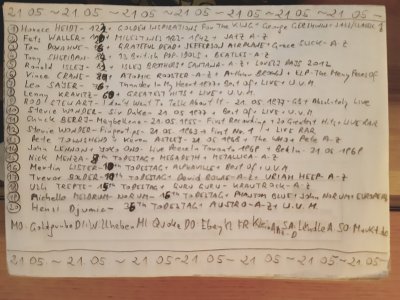 21 05 ~ 21 05 ~ 21 05 ~ 21 05 ~ 21 05 ~ 21 05 ~ 21 05
HORACE HEIDT - + GOLDEN INSPIRATIONS FOR THE + George GERSHWIN + JAZZ
FATS WALLER - + MILESTONES 1927-1942 + JAZZ A-Z
TOM DONAHUE - + GRATEFUL DEAD + JEFFERSON AIRPLANE + Grace SLICK - A-Z
TONY SHERIDAN - + BRITISH POP IDOLS + BEATLES - A-Z
RON ISLEY - + ISLEY BROTHERS + SANTANA - A-Z + LOVELY DAYS 2012
VINCE CRANE - + ATOMIC ROOSTER - A-Z + Arthur BROWN + ELP - The Many Faces Of
LEO SAYER - + Thunder In My Heart 1977 + Best Of + L I V E U.V.M
LENNY KRAVITZ - + GREATEST HITS + LIVE + U.V.M.
ROD STEWART - I don't Want To Talk About It - 21.05.1977 - GB + Absolutely LIVE
STEVIE WONDER - Sir Duke - 21.05.1977 + Best of + LIVE + U.V.M.
CHUCK BERRY - Maybellene - 21.05.1955 - First Recording + 20 Greatest Hits + LIVE RAR
STEVIE WONDER - Fingertips - 21.05.1963 + First No. 1 + LIVE RAR
PETE TOWNSHEND + Karen ASTLEY - 21.05.1968 + The WHO + Pete A-Z
JOHN LENNON + YOKO ONO - Live Peace In Toronto 1969 + Berlin - 21.05.1968
NICK MENZA - TODESTAG + MEGADETH + METALLICA - A-Z
MARTIN LISTER - 10 TODESTAG + ALPHAVILLE + Best of + U.V.M
TREVOR BOLDER - TODESTAG + DAVID BOWIE - A-Z + URIAH HEEP - A-Z
ULI TREPTE - 15th TODESTAG + GURU GURU + KRAUTROCK - A-Z
MICHELLE MELDRUM - NORUM - TODESTAG + PHANTOM BLUE + John NORUM + EUROPE A-Z
HENSI DJUMIC - TODESTAG + AUSTRO - A-Z + U.V.M
MO. Goldgrube DI. Wühlbeben MI. Quoka DO. Ebay Kl. FR. SA. SO. Markt.de
21 05 ~ 21 05 ~ 21 05 ~ 21 05 ~ 21 05 ~ 21 05 ~ 21 05